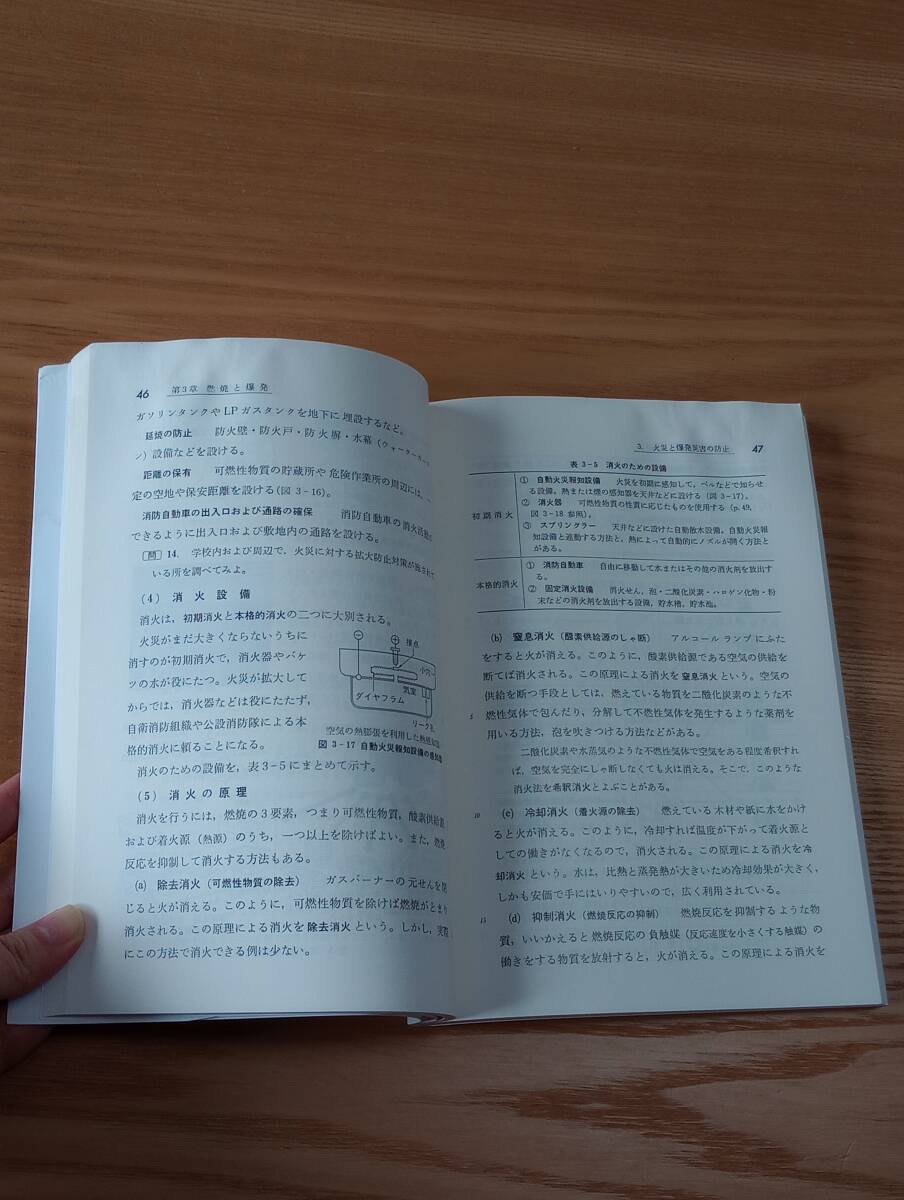 46 第3章 燃焼と爆発
ガソリンタンクやLPガスタンクを地下に埋設するなど。
延焼の防止 防火壁・防火戸・防火塀・水幕(ウォーターカーテ
ン)設備などを設ける。
距離の保有 可燃性物質の貯蔵所や危険作業所の周辺には,一
定の空地や保安距離を設ける(図3-16)。
消防自動車の出入口および通路の確保 消防自動車の消火活動が
できるように出入口および敷地内の通路を設ける。
問 14. 学校内および周辺で,火災に対する拡大防止対策が施されて
いる所を調べてみよ。
(4) 消火設備
消火は,初期消火と本格的消火の二つに大別される。
火災がまだ大きくならないうちに
消すのが初期消火で,消火器やバケ
ツの水が役にたつ。火災が拡大して
からでは,消火器などは役にたたず,
自衛消防組織や公設消防隊による本
格的消火に頼ることになる。
接点
小穴
気室
ダイヤフラム
リーク孔
空気の熱膨張を利用した熱感知器
図3-17 自動火災報知設備の感知器
消火のための設備を,表3-5にまとめて示す。
(5) 消火の原理
消火を行うには,燃焼の3要素,つまり可燃性物質,酸素供給源
および着火源(熱源)のうち,一つ以上を除けばよい。また,燃焼
反応を抑制して消火する方法もある。
(a) 除去消火(可燃性物質の除去) ガスバーナーの元せんを閉
じると火が消える。このように,可燃性物質を除けば燃焼がとまり
消火される。この原理による消火を除去消火という。しかし,実際
にこの方法で消火できる例は少ない。
3. 火災と爆発災害の防止 47
表3-5 消火のための設備
初期消火
① 自動火災報知設備 火災を初期に感知して,ベルなどで知らせ
る設備。熱または煙の感知器を天井などに設ける(図3-17)。
② 消火器 可燃性物質の性質に応じたものを使用する(p.49,
図3-18参照)。
③ スプリンクラー 天井などに設けた自動散水設備。自動火災報
知設備と連動する方法と,熱によって自動的にノズルが開く方法と
がある。
本格的消火
① 消防自動車 自由に移動して水またはその他の消火剤を放出す
る。
② 固定消火設備 消火せん,泡・二酸化炭素・ハロゲン化物・粉
末などの消火剤を放出する設備,貯水槽,貯水池。
(b) 窒息消火(酸素供給源のしゃ断) アルコールランプにふた
をすると火が消える。このように,酸素供給源である空気の供給を
断てば消火される。この原理による消火を窒息消火という。空気の
供給を断つ手段としては,燃えている物質を二酸化炭素のような不
5 燃性気体で包んだり,分解して不燃性気体を発生するような薬剤を
用いる方法,泡を吹きつける方法などがある。
二酸化炭素や水蒸気のような不燃性気体で空気をある程度希釈すれ
ば,空気を完全にしゃ断しなくても火は消える。そこで,このような
消火法を希釈消火とよぶことがある。
10 (c) 冷却消火(着火源の除去) 燃えている木材や紙に水をかけ
ると火が消える。このように,冷却すれば温度が下がって着火源と
しての働きがなくなるので,消火される。この原理による消火を冷
却消火という。水は,比熱と蒸発熱が大きいため冷却効果が大きく,
しかも安価で手にはいりやすいので,広く利用されている。
15 (d) 抑制消火(燃焼反応の抑制) 燃焼反応を抑制するような物
質,いいかえると燃焼反応の負触媒(反応速度を小さくする触媒)の
働きをする物質を放射すると,火が消える。この原理による消火を